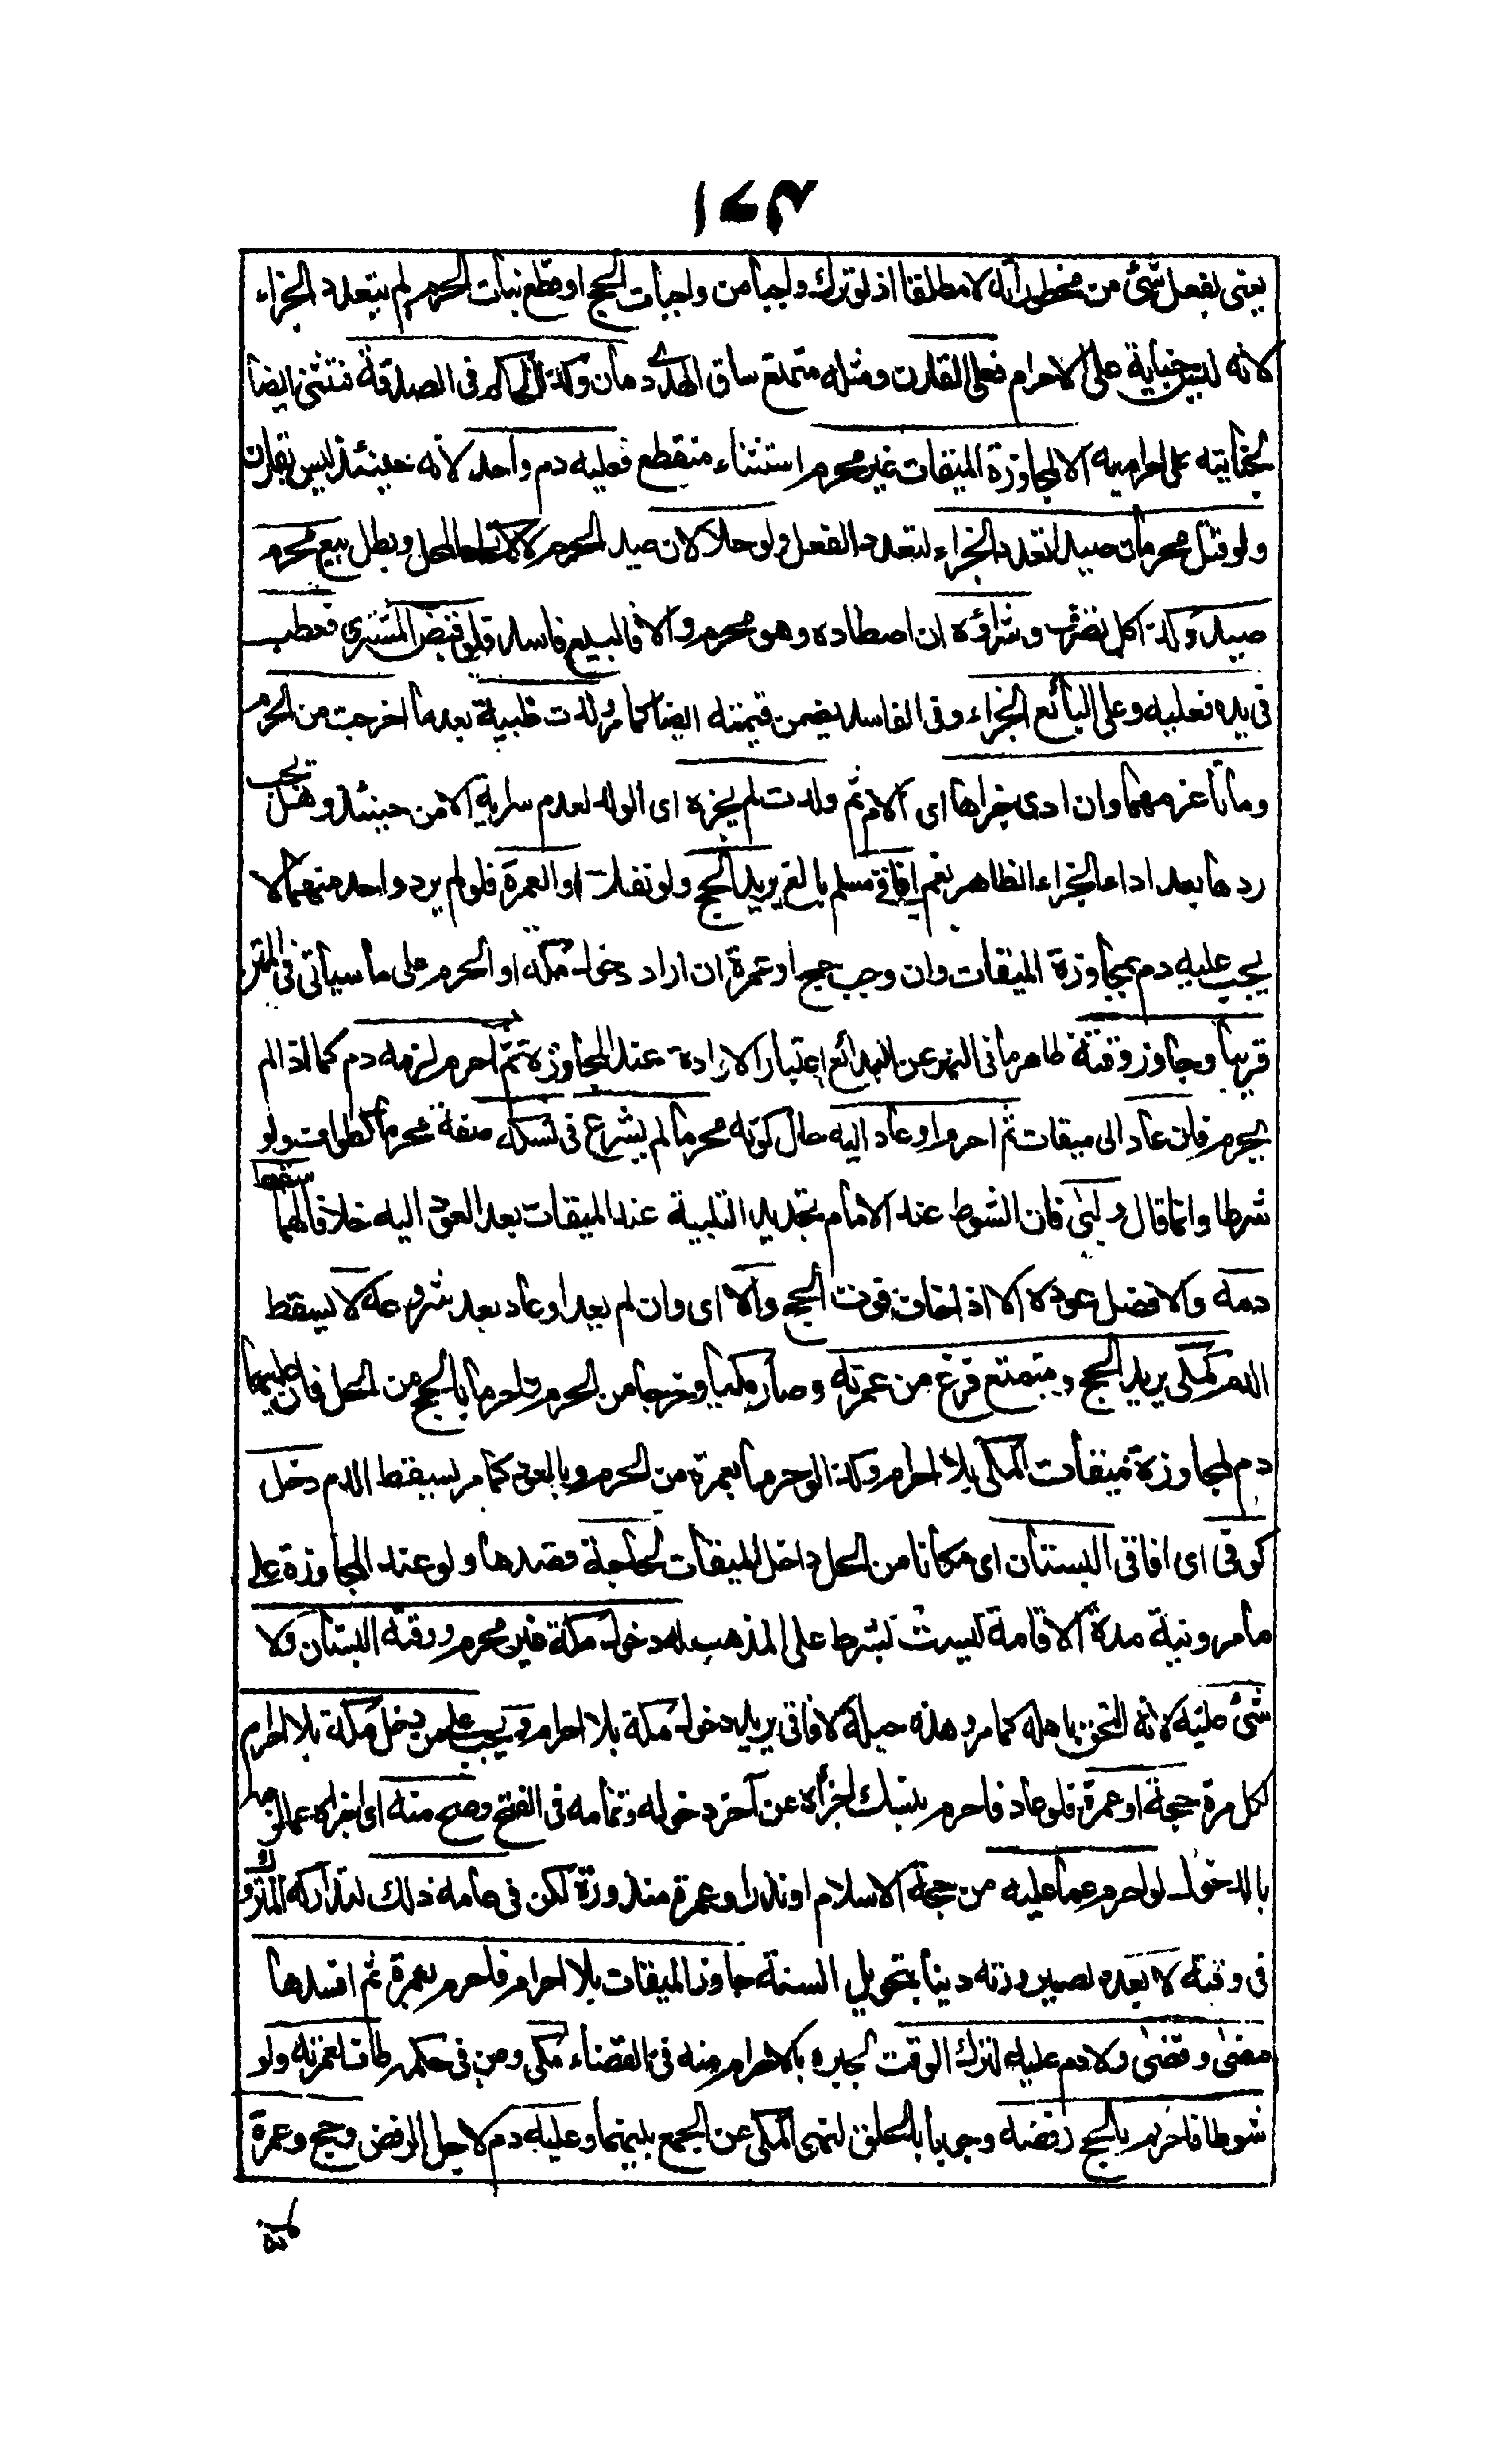 ١٤٣
يعنى بفعل شئ من محظوراته لا مطلقا اذ لو ترك واجبا من واجبات الحج او قطع نبات الحرم لم يتعدد الجزاء
لانه ليس جناية على الاحرام فعلى القارن ومثله متمتع ساق الهدى دمان وكذا الحكم فى الصدقة فتثنى ايضا
لجنايته على احراميه الا بمجاوزة الميقات غير محرم استثناء منقطع فعليه دم واحد لانه حينئذ ليس بقارن
ولو قتل محرمان صيدا تعدد الجزاء لتعدد الفعل ولو حلالان صيد الحرم لا لاتحاد المحل وبطل بيع محرم
صيدا وكذا كل تصرف وشراؤه ان اصطاده وهو محرم والا فالبيع فاسد فلو قبض المشترى فعطب
فى يده فعليه وعلى البائع الجزاء وفى الفاسد يضمن قيمته ايضا كما مر ولدت ظبية بعد ما اخرجت من الحرم
وماتا غرمهما وان ادى جزاها اى الام ثم ولدت لم يجزه اى الولد لعدم سراية الامن حينئذ وهل يجب
ردها بعد اداء الجزاء الظاهر نعم افاقى مسلم بالغ يريد الحج ولو نفلا او العمرة فلو لم يرد واحد منهما لا
يجب عليه دم بمجاوزة الميقات وان وجب حج او عمرة ان اراد دخول مكة او الحرم على ما سيأتى فى المتن
قريبا وجاوز وقته ظاهر ما فى النهر عن البدائع اعتبار الارادة عند المجاوزة ثم احرم لزمه دم كما اذا لم
يحرم فان عاد الى ميقات ثم احرم او عاد اليه حال كونه محرما لم يشرع فى نسكه صفة محرما كطواف ولو
شوطا وانما قال ولبى فان الشوط عند الامام تجديد التلبية عند الميقات بعد العود اليه خلافا لهما سقط
دمه والافضل عوده الا اذا خاف فوت الحج والا اى وان لم يعد او عاد بعد شروعه لا يسقط
الدم كمكى يريد الحج ومتمتع فرغ من عمرته وصار مكيا وخرجا من الحرم واحرما بالحج من الحل فان عليهما
دم لمجاوزة ميقات المكى بلا احرام وكذا لو احرما بعمرة من الحرم وبالعود كما مر يسقط الدم دخل
كوفى اى افاقى البستان اى مكانا من الحل داخل الميقات لحاجة قصدها ولو عند المجاوزة على
ما مر ونية مدة الاقامة ليست بشرط على المذهب له دخول مكة غير محرم ووقته البستان ولا
شئ عليه لانه التحق باهله كما مر وهذه حيلة لافاقى يريد دخول مكة بلا احرام ويجب على من دخل مكة بلا احرام
لكل مرة حجة او عمرة فلو عاد فاحرم بنسك اجزأه عن آخر دخوله وتمامه فى الفتح وصح منه اى اجزاه عما لزمه
بالدخول لو احرم عما عليه من حجة الاسلام او نذر او عمرة منذورة لكن فى عامه ذلك لتداركه المتروك
فى وقته لا بعده لصيرورته دينا بتحويل السنة جاوز الميقات بلا احرام فاحرم بعمرة ثم افسدها
مضى وقضى ولا دم عليه لترك الوقت لجبره بالاحرام منه فى القضاء مكى ومن فى حكمه طاف لعمرته ولو
شوطا فاحرم بالحج رفضه وجوبا بالحلق لنهى المكى عن الجمع بينهما وعليه دم لاجل الرفض وحج وعمرة